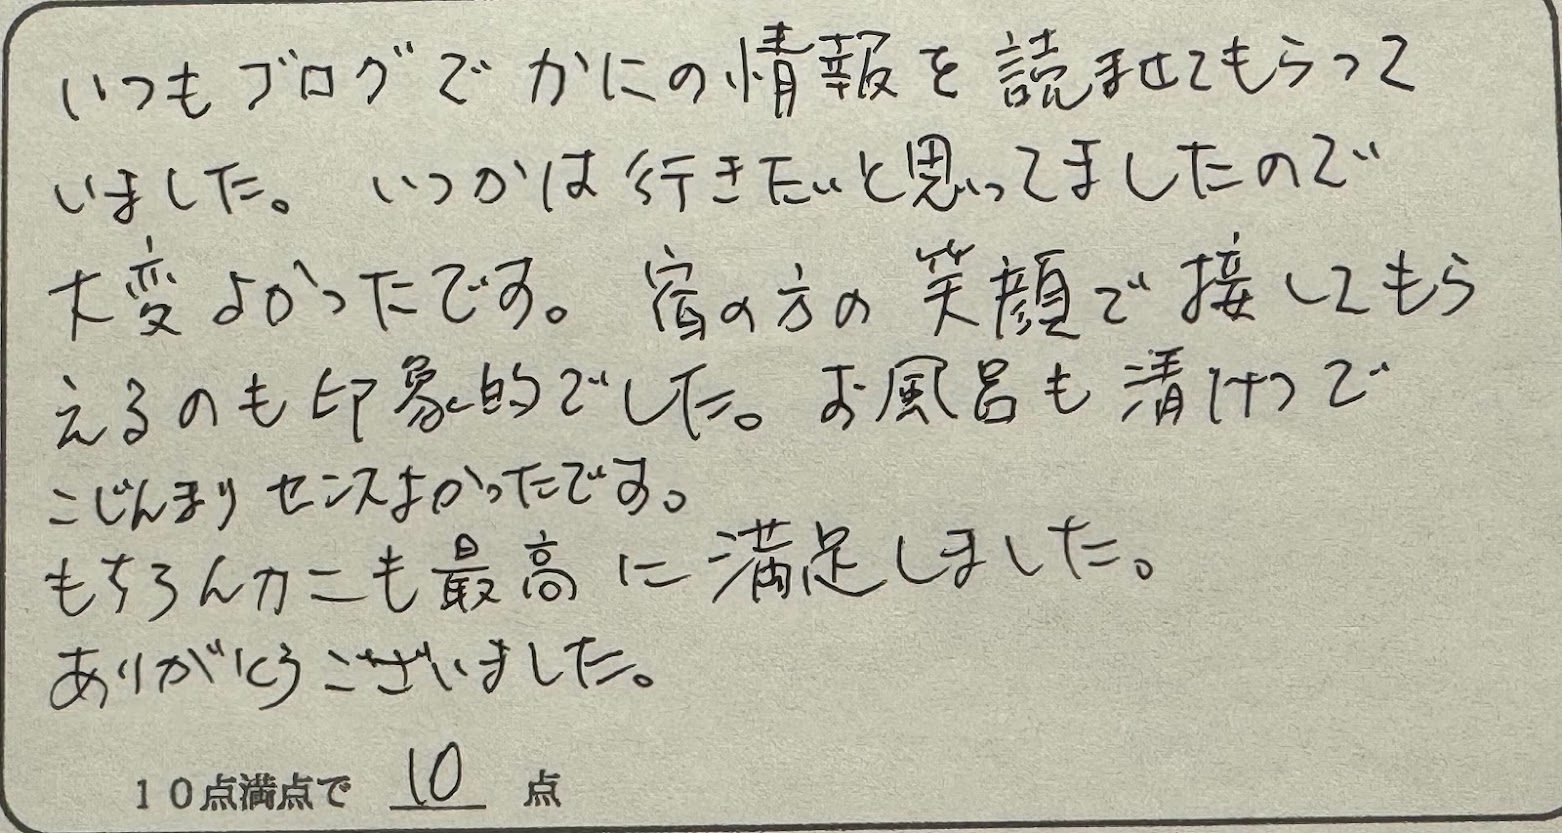 いつもブログでかにの情報を読ませてもらって
いました。いつかは行きたいと思ってましたので
大変よかったです。宿の方の笑顔で接してもら
えるのも印象的でした。お風呂も清けつで
こじんまりセンスよかったです。
もちろんカニも最高に満足しました。
ありがとうございました。
10点満点で 10 点